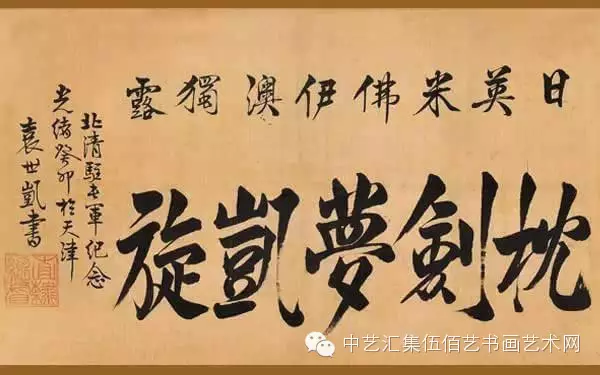 日英米佛伊澳獨露
枕劍夢凱旋
北清駐屯軍纪念
光緒癸卯於天津
袁世凱書
中艺汇集伍佰艺书画艺术网